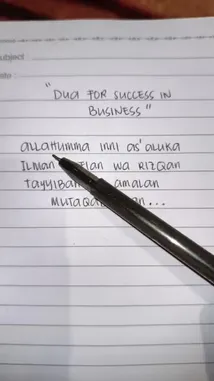 ubject
" DUA FOR SUCCESS IN
BUSINESS "
allahumma inni as'aluka
ILMan wa RIZQan
tayyiba amalan
MUTAQA an...